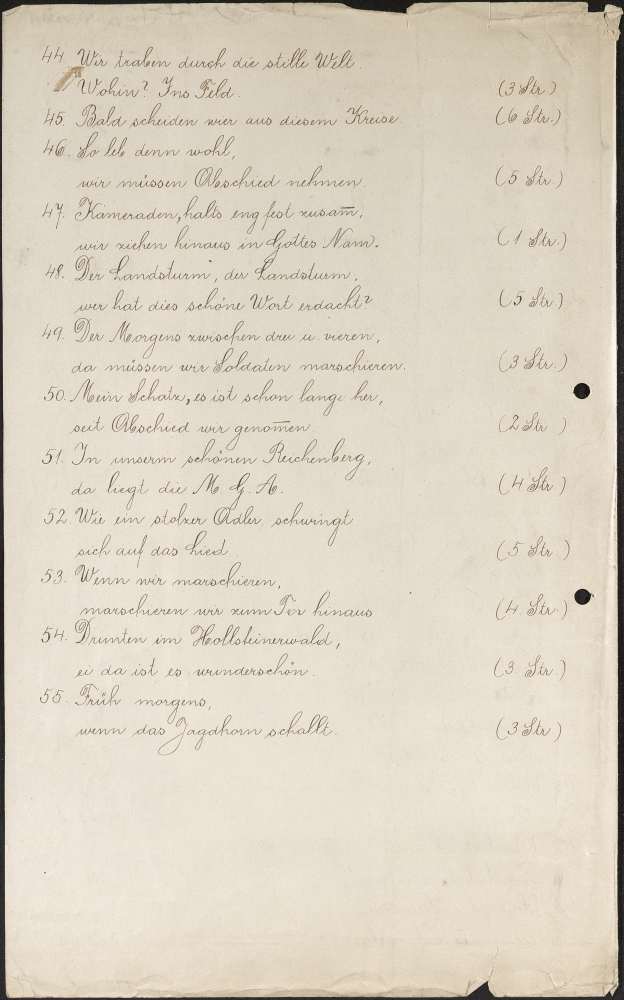 44. Wir traben durch die stille Welt.
Wohin? Ins Feld. (3 Str.)
45. Bald scheiden wir aus diesem Kreise. (6 Str.)
46. So leb denn wohl,
wir müssen Abschied nehmen. (5 Str.)
47. Kameraden, halts eng fest zusam̅,
wir ziehen hinaus in Gottes Nam. (1 Str.)
48. Der Landsturm, der Landsturm,
wer hat dies schöne Wort erdacht? (5 Str.)
49. Der Morgens zwischen drei u. vieren,
da müssen wir Soldaten marschieren. (3 Str.)
50. Mein Schatz, es ist schon lange her,
seit Abschied wir genom̅en. (2 Str.)
51. In unserm schönen Reichenberg,
da liegt die M. G. A. (4 Str.)
52. Wie ein stolzer Adler schwingt
sich auf das Lied. (5 Str.)
53. Wenn wir marschieren,
marschieren wir zum Tor hinaus (4 Str.)
54. Drunten im Hollsteinerwald,
ei da ist es wunderschön. (3 Str.)
55. Früh morgens,
wenn das Jagdhorn schallt. (3 Str.)